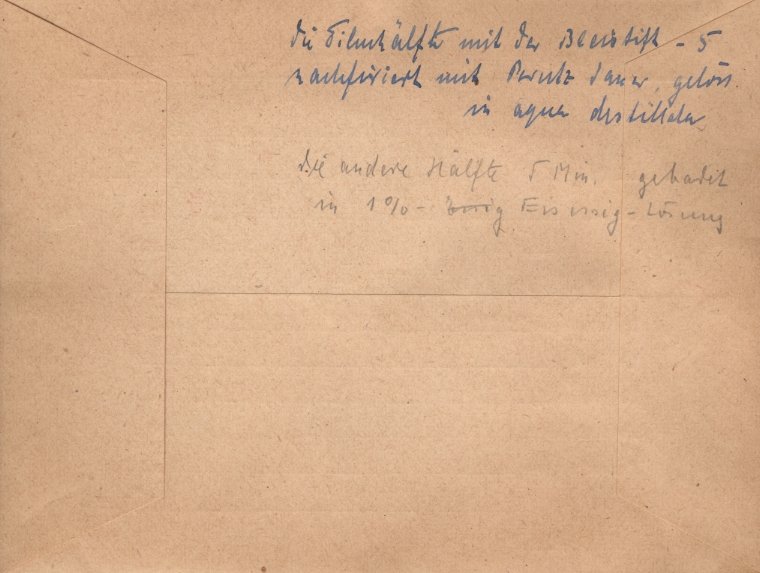 die Filmhälfte mit der Bleistift - 5
nachfixiert mit Perutz dauer, gelöst
in aqua destillata
Die andere Hälfte 5 Min. gebadet
in 1%- Eisessig-Lösung